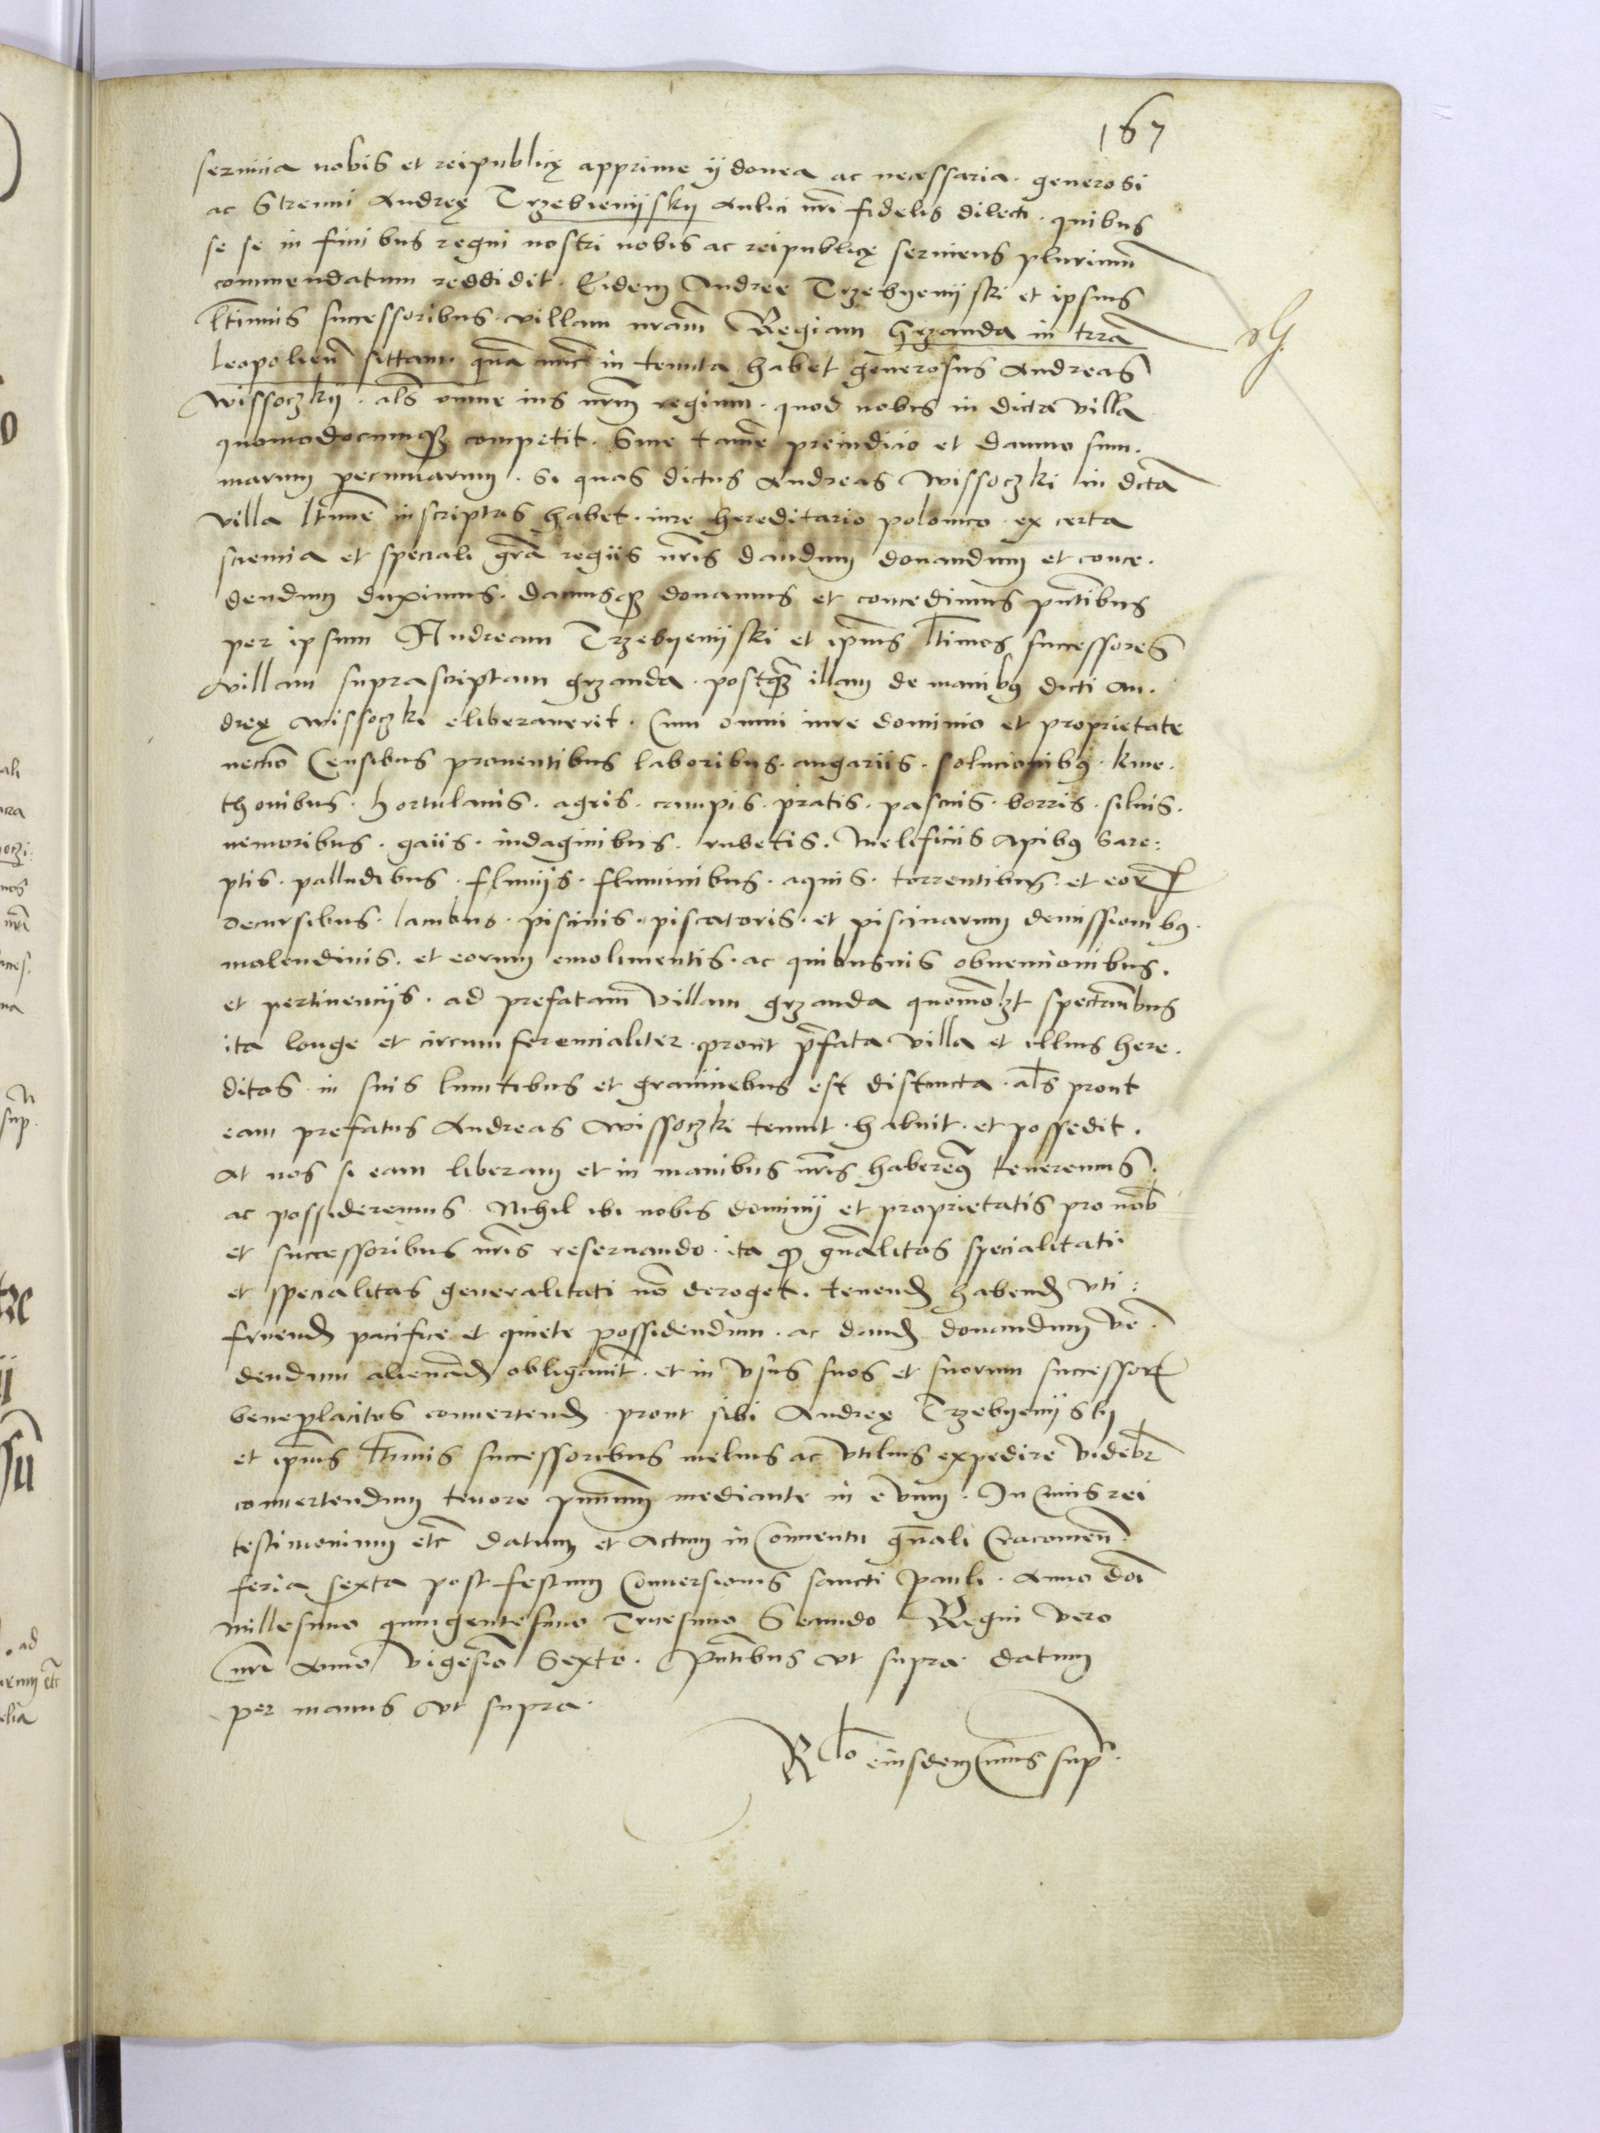 167
seruicia nobis et reipublicę apprime ijdonea ac necessaria. generosi
ac Strenui Andreę Trzebienijskij Aulici nr̄i fidelis dilecti. quibus
se se in finibus regni nostri nobis ac reipublicę seruiens plurimum
commendatum reddidit. Eidem Andree Trzebyenijski et ipsius
ltīmis successoribus villam nram̄ Regiam Grzanda in trrā
Leopolien̄ sittam quā nunc in tenuta habet generosus Andreas
Wissoczkij. als̄ omne ius nrm̄ regium. quod nobis in dicta villa
quomodocumqȝ competit. Sine tamē preiudicio et damno sum.
marum pecuniarum. si quas dictus Andreas Wissoczki in dctā
villa ltīme inscriptas habet. iure hereditario polonico. ex certa
sciencia et speciali grā regiis nr̄is dandum donandum et conce.
dendum duximus. damusqȝ donamus et concedimus pn̄tibus
per ipsum Andream Trzebyenijski et ip̄ius ltīmos successores
villam suprascriptam grzanda. postqȝ illam de manibꝰ dicti An.
dreę Wissoczki eliberauerit. Cum omni iure dominio et proprietate
necnō Censibus prouentibus laboribus. angariis. solucionibꝰ. kme.
thonibus. hortulanis. agris. campis. pratis. pascuis. borris. siluis.
nemoribus. gaiis. indaginibus. rubetis. Melificiis apibꝰ bare:
ptis. palludibus. fluuijs. fluminibus. aquis. torrentibus. et eor̄
decursibus. lacubus. piscinis. piscatoris. et piscinarum demissionibꝰ.
molendinis. et eorum emolimentis. ac quibusuis obuencionibus.
et pertinencijs. ad prefatam villam grzanda quomolȝt spectantibus
ita longe et circumferencialiter. prout p̄fata villa et illius here.
ditas in suis limitibus et graniciebus est distincta. als̄ prout
eam prefatus Andreas Wissoczki tenuit. habuit. et possedit.
At nos si eam liberam et in manibus nr̄is haberemꝰ teneremus.
ac possideremus. Nihil ibi nobis dominij et proprietatis pro nob̄
et successoribus nr̄is reseruando. ita qȝ gn̄alitas specialitati
et specialitas generalitati nō deroget. tenend̄ habend̄ vti:
fruend̄ pacifice et quiete possidendum. ac dand̄ donandum vē.
dendum alienand̄ obligand̄. et in vsus suos et suorum successor̄
beneplacitos conuertend̄. prout sibi Andreę Trzebyenijskij
et ip̄ius ltīmis successoribus melius ac vtilius expedire videbr̄
conuertendum tenore pn̄cium mediante in ęvum. In Cuius rei
testimonium etc̄ datum et Actum in Conuentu gn̄ali Cracouien̄.
feria sexta post festum Conuersionis sancti pauli. Anno dn̄i
millesimo quingentesimo Tricesimo Secundo Regni vero
nr̄i Anno vigesimo Sexto. pn̄tibus vt supra. datum
per manus vt supra.
Rlō eiusdem cuius sup̄.